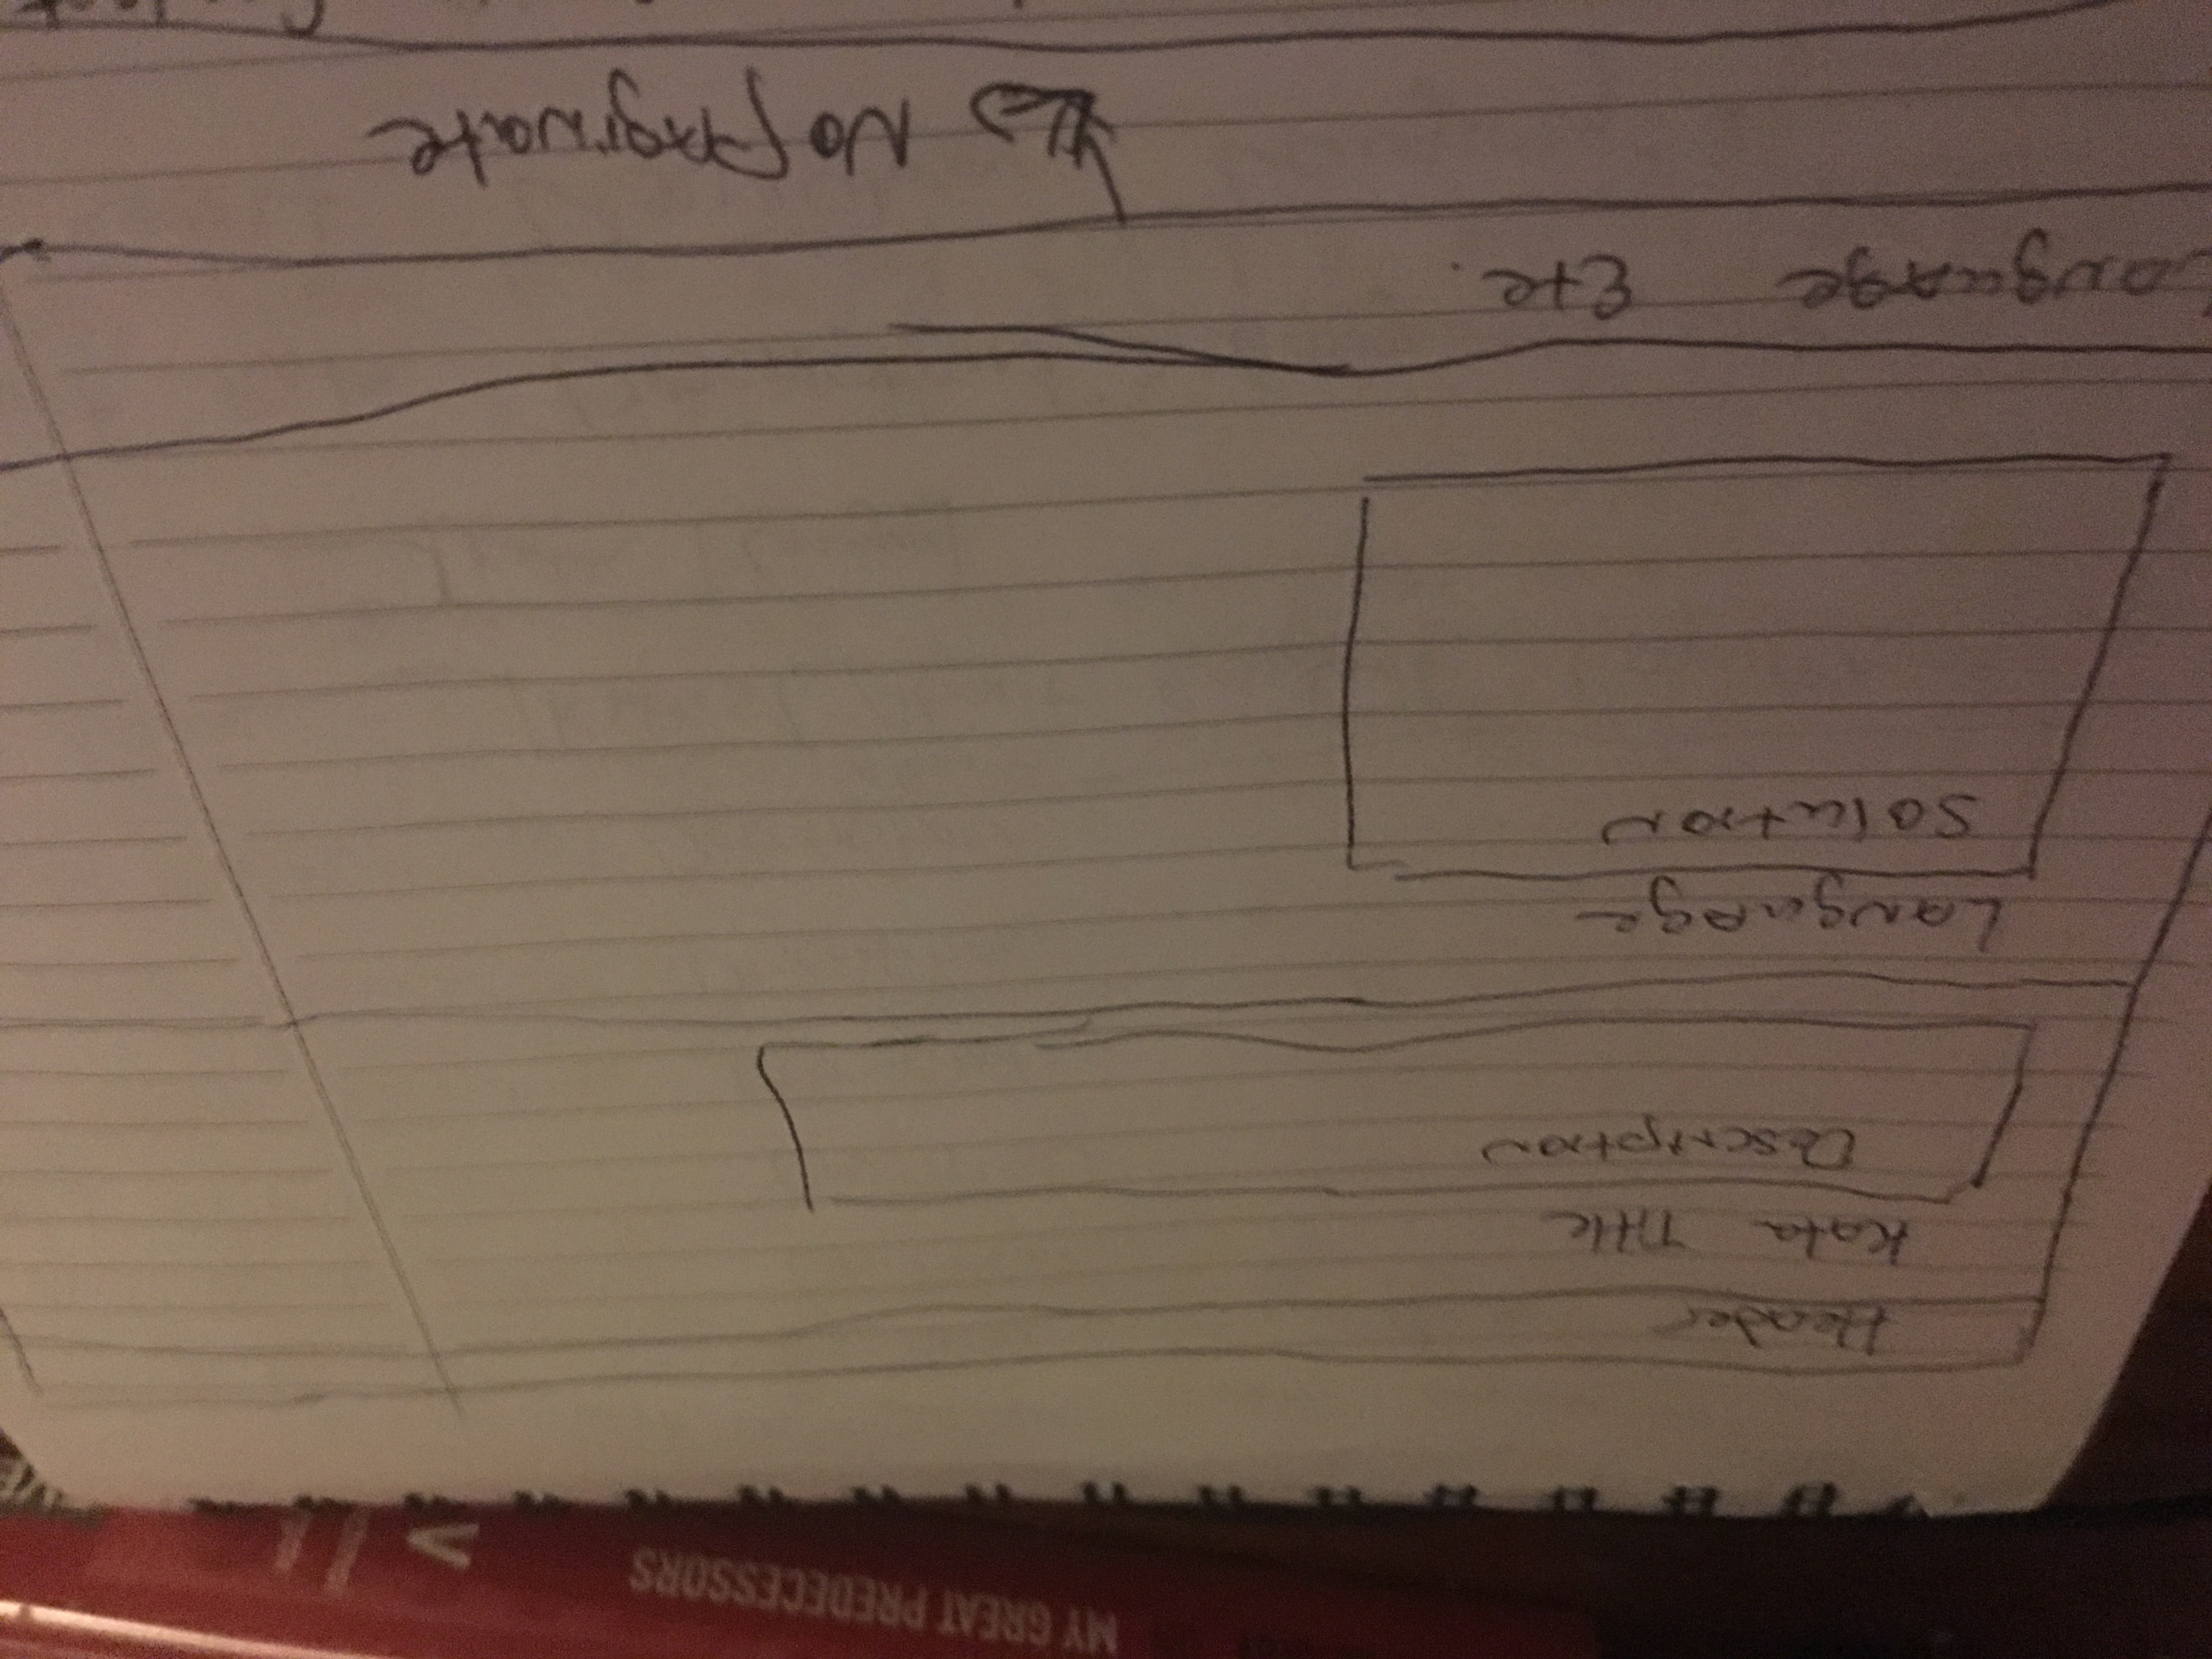 MY GREAT PREDECESSORS
Header
Kata Title
Description
Language
Solution
Language Etc.
No Paginate